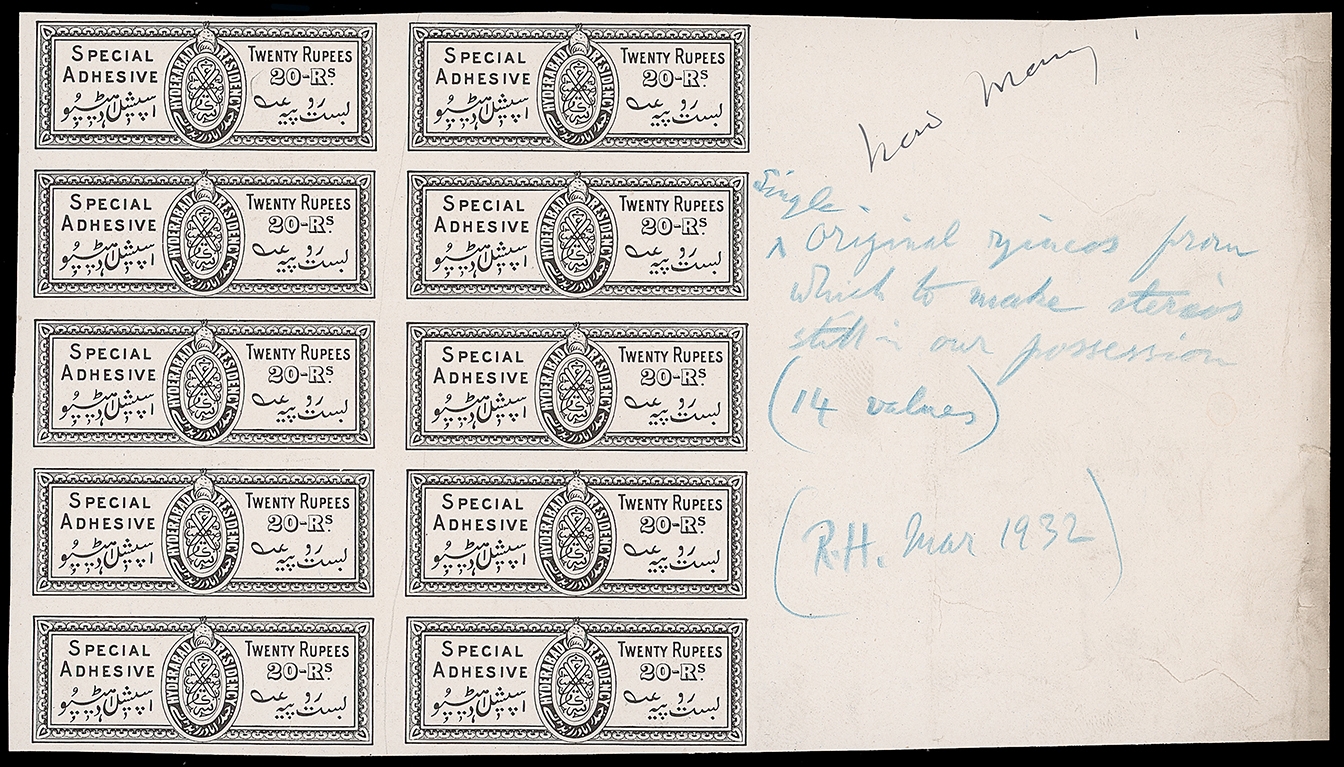 SPECIAL
ADHESIVE
اسپیشل
HYDERABAD RESIDENCY
TWENTY RUPEES
20-Rs.
بست روپیہ
SPECIAL
ADHESIVE
اسپیشل
HYDERABAD RESIDENCY
TWENTY RUPEES
20-Rs.
بست روپیہ
SPECIAL
ADHESIVE
اسپیشل
HYDERABAD RESIDENCY
TWENTY RUPEES
20-Rs.
بست روپیہ
SPECIAL
ADHESIVE
اسپیشل
HYDERABAD RESIDENCY
TWENTY RUPEES
20-Rs.
بست روپیہ
SPECIAL
ADHESIVE
اسپیشل
HYDERABAD RESIDENCY
TWENTY RUPEES
20-Rs.
بست روپیہ
SPECIAL
ADHESIVE
اسپیشل
HYDERABAD RESIDENCY
TWENTY RUPEES
20-Rs.
بست روپیہ
SPECIAL
ADHESIVE
اسپیشل
HYDERABAD RESIDENCY
TWENTY RUPEES
20-Rs.
بست روپیہ
SPECIAL
ADHESIVE
اسپیشل
HYDERABAD RESIDENCY
TWENTY RUPEES
20-Rs.
بست روپیہ
SPECIAL
ADHESIVE
اسپیشل
HYDERABAD RESIDENCY
TWENTY RUPEES
20-Rs.
بست روپیہ
SPECIAL
ADHESIVE
اسپیشل
HYDERABAD RESIDENCY
TWENTY RUPEES
20-Rs.
بست روپیہ
how many
Single
Original zincos from
which to make stereos
still in our possession
(14 values)
(R.H. Mar 1932)